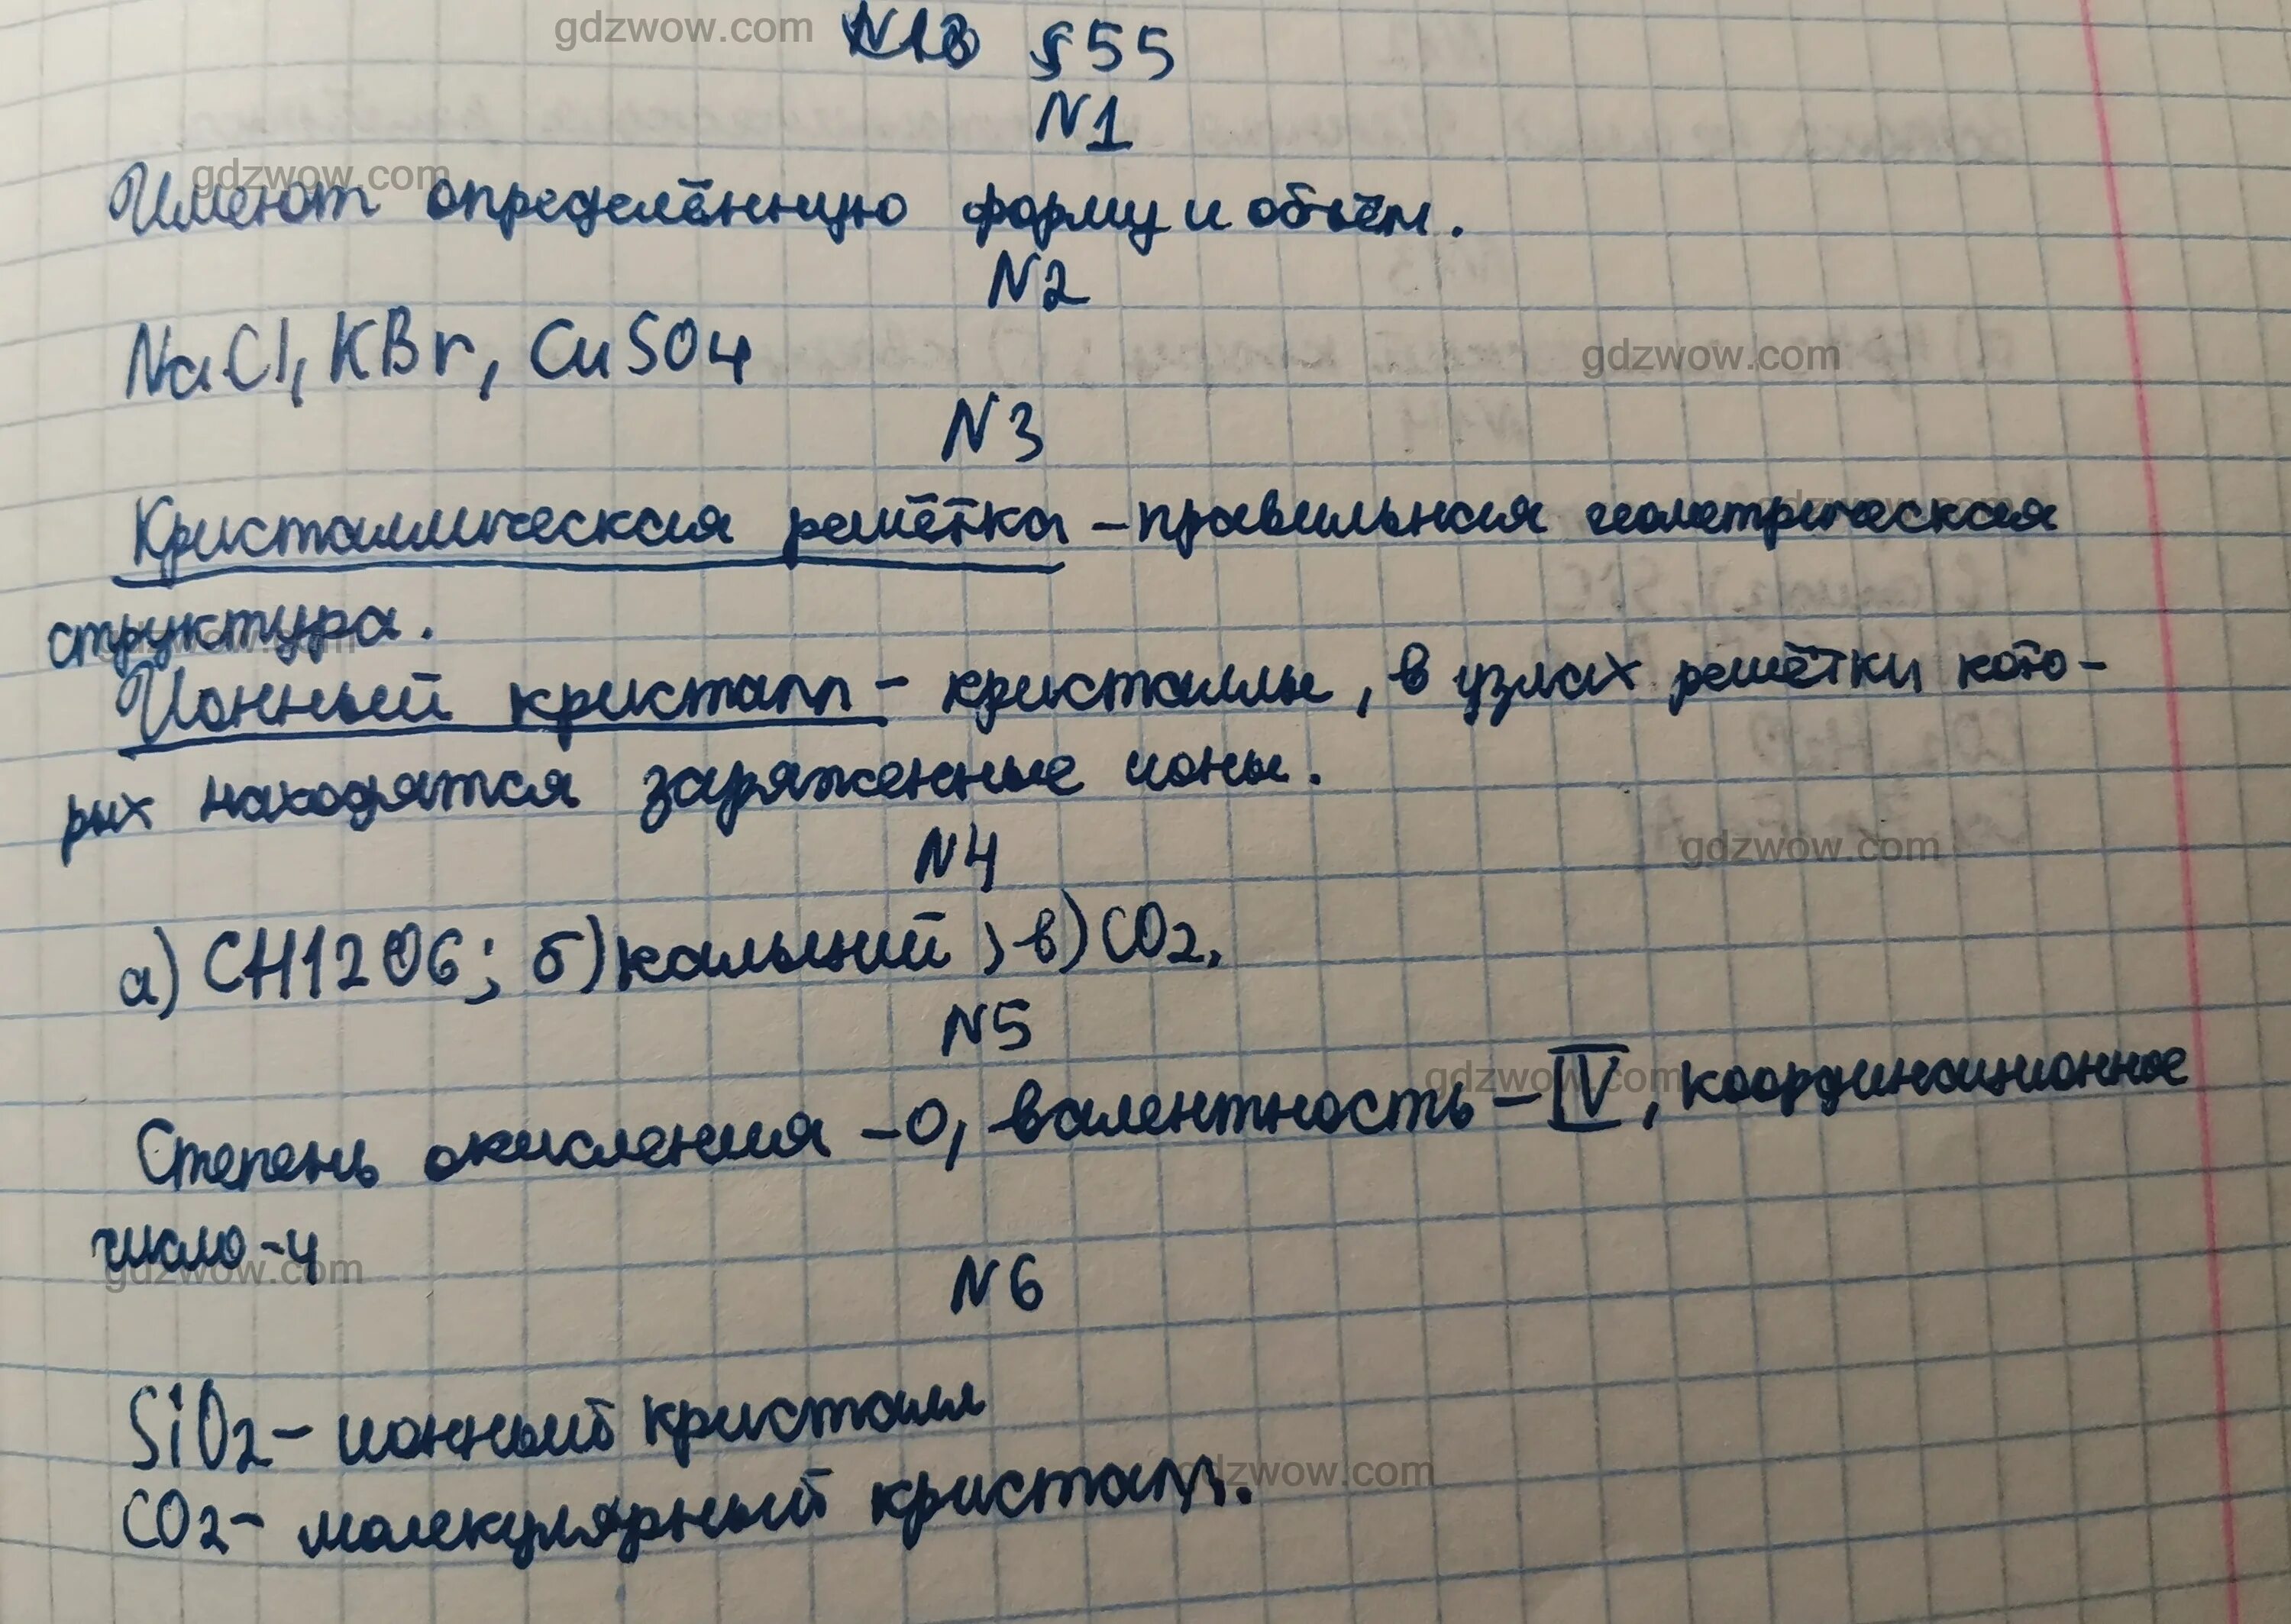 gdzwow.com
§55
N1
gdzwow.com
Имеют определённую форму и объём.
N2
NaCl, KBr, CuSO4
gdzwow.com
N3
Кристаллическая решётка – правильная геометрическая
gdzwow.com
структура.
gdzwow.com
Ионный кристалл – кристаллы, в узлах решётки кото-
рых находятся заряженные ионы.
N4
gdzwow.com
а) CH12O6; б) кальций; в) CO2.
N5
gdzwow.com
Степень окисления – 0, валентность – IV, координационное
число – 4
gdzwow.com
N6
SiO2 – ионный кристалл
gdzwow.com
CO2 – молекулярный кристалл.